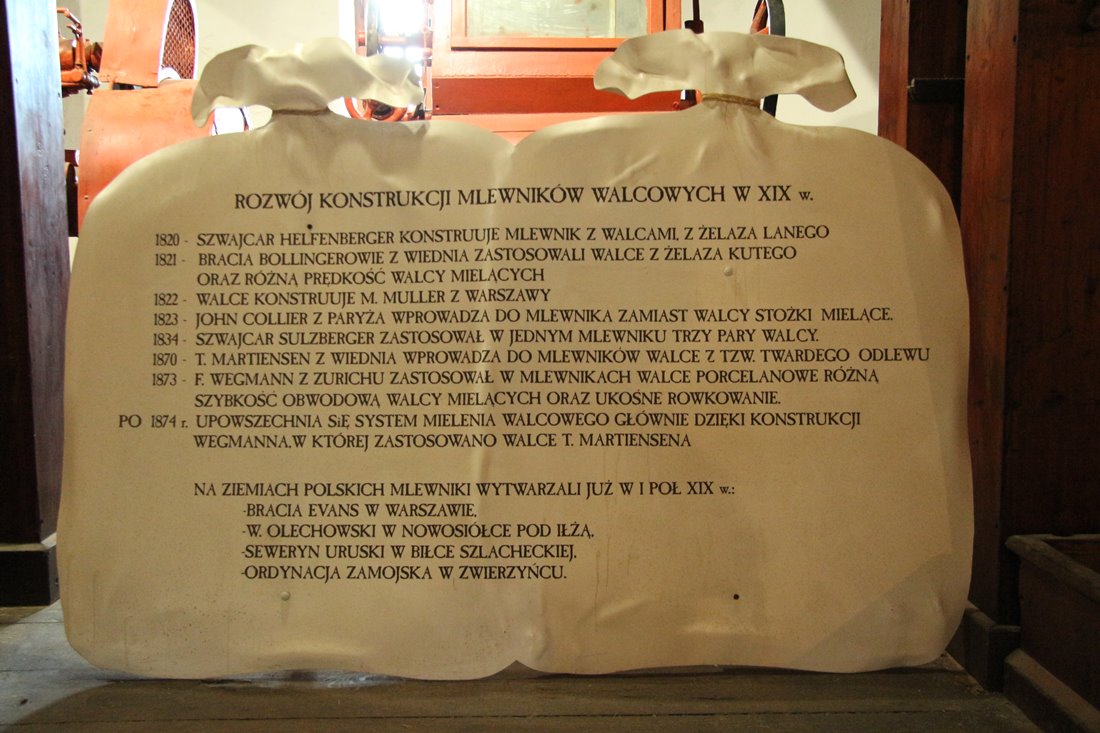 ROZWÓJ KONSTRUKCJI MLEWNIKÓW WALCOWYCH W XIX w.
1820 - SZWAJCAR HELFENBERGER KONSTRUUJE MLEWNIK Z WALCAMI, Z ŻELAZA LANEGO
1821 - BRACIA BOLLINGEROWIE Z WIEDNIA ZASTOSOWALI WALCE Z ŻELAZA KUTEGO
ORAZ RÓŻNĄ PRĘDKOŚĆ WALCY MIELĄCYCH
1822 - WALCE KONSTRUUJE M. MULLER Z WARSZAWY
1823 - JOHN COLLIER Z PARYŻA WPROWADZA DO MLEWNIKA ZAMIAST WALCY STOŻKI MIELĄCE.
1834 - SZWAJCAR SULZBERGER ZASTOSOWAŁ W JEDNYM MLEWNIKU TRZY PARY WALCY.
1870 - T. MARTIENSEN Z WIEDNIA WPROWADZA DO MLEWNIKÓW WALCE Z TZW. TWARDEGO ODLEWU
1873 - F. WEGMANN Z ZURICHU ZASTOSOWAŁ W MLEWNIKACH WALCE PORCELANOWE RÓŻNĄ
SZYBKOŚĆ OBWODOWĄ WALCY MIELĄCYCH ORAZ UKOŚNE ROWKOWANIE.
PO 1874 r. UPOWSZECHNIA SiĘ SYSTEM MIELENIA WALCOWEGO GŁÓWNIE DZIĘKI KONSTRUKCJI
WEGMANNA, W KTÓREJ ZASTOSOWANO WALCE T. MARTIENSENA
NA ZIEMIACH POLSKICH MLEWNIKI WYTWARZALI JUŻ W I POŁ XIX w.:
-BRACIA EVANS W WARSZAWIE,
-W. OLECHOWSKI W NOWOSIÓŁCE POD IŁŻĄ,
-SEWERYN URUSKI W BIŁCE SZLACHECKIEJ,
-ORDYNACJA ZAMOJSKA W ZWIERZYŃCU.